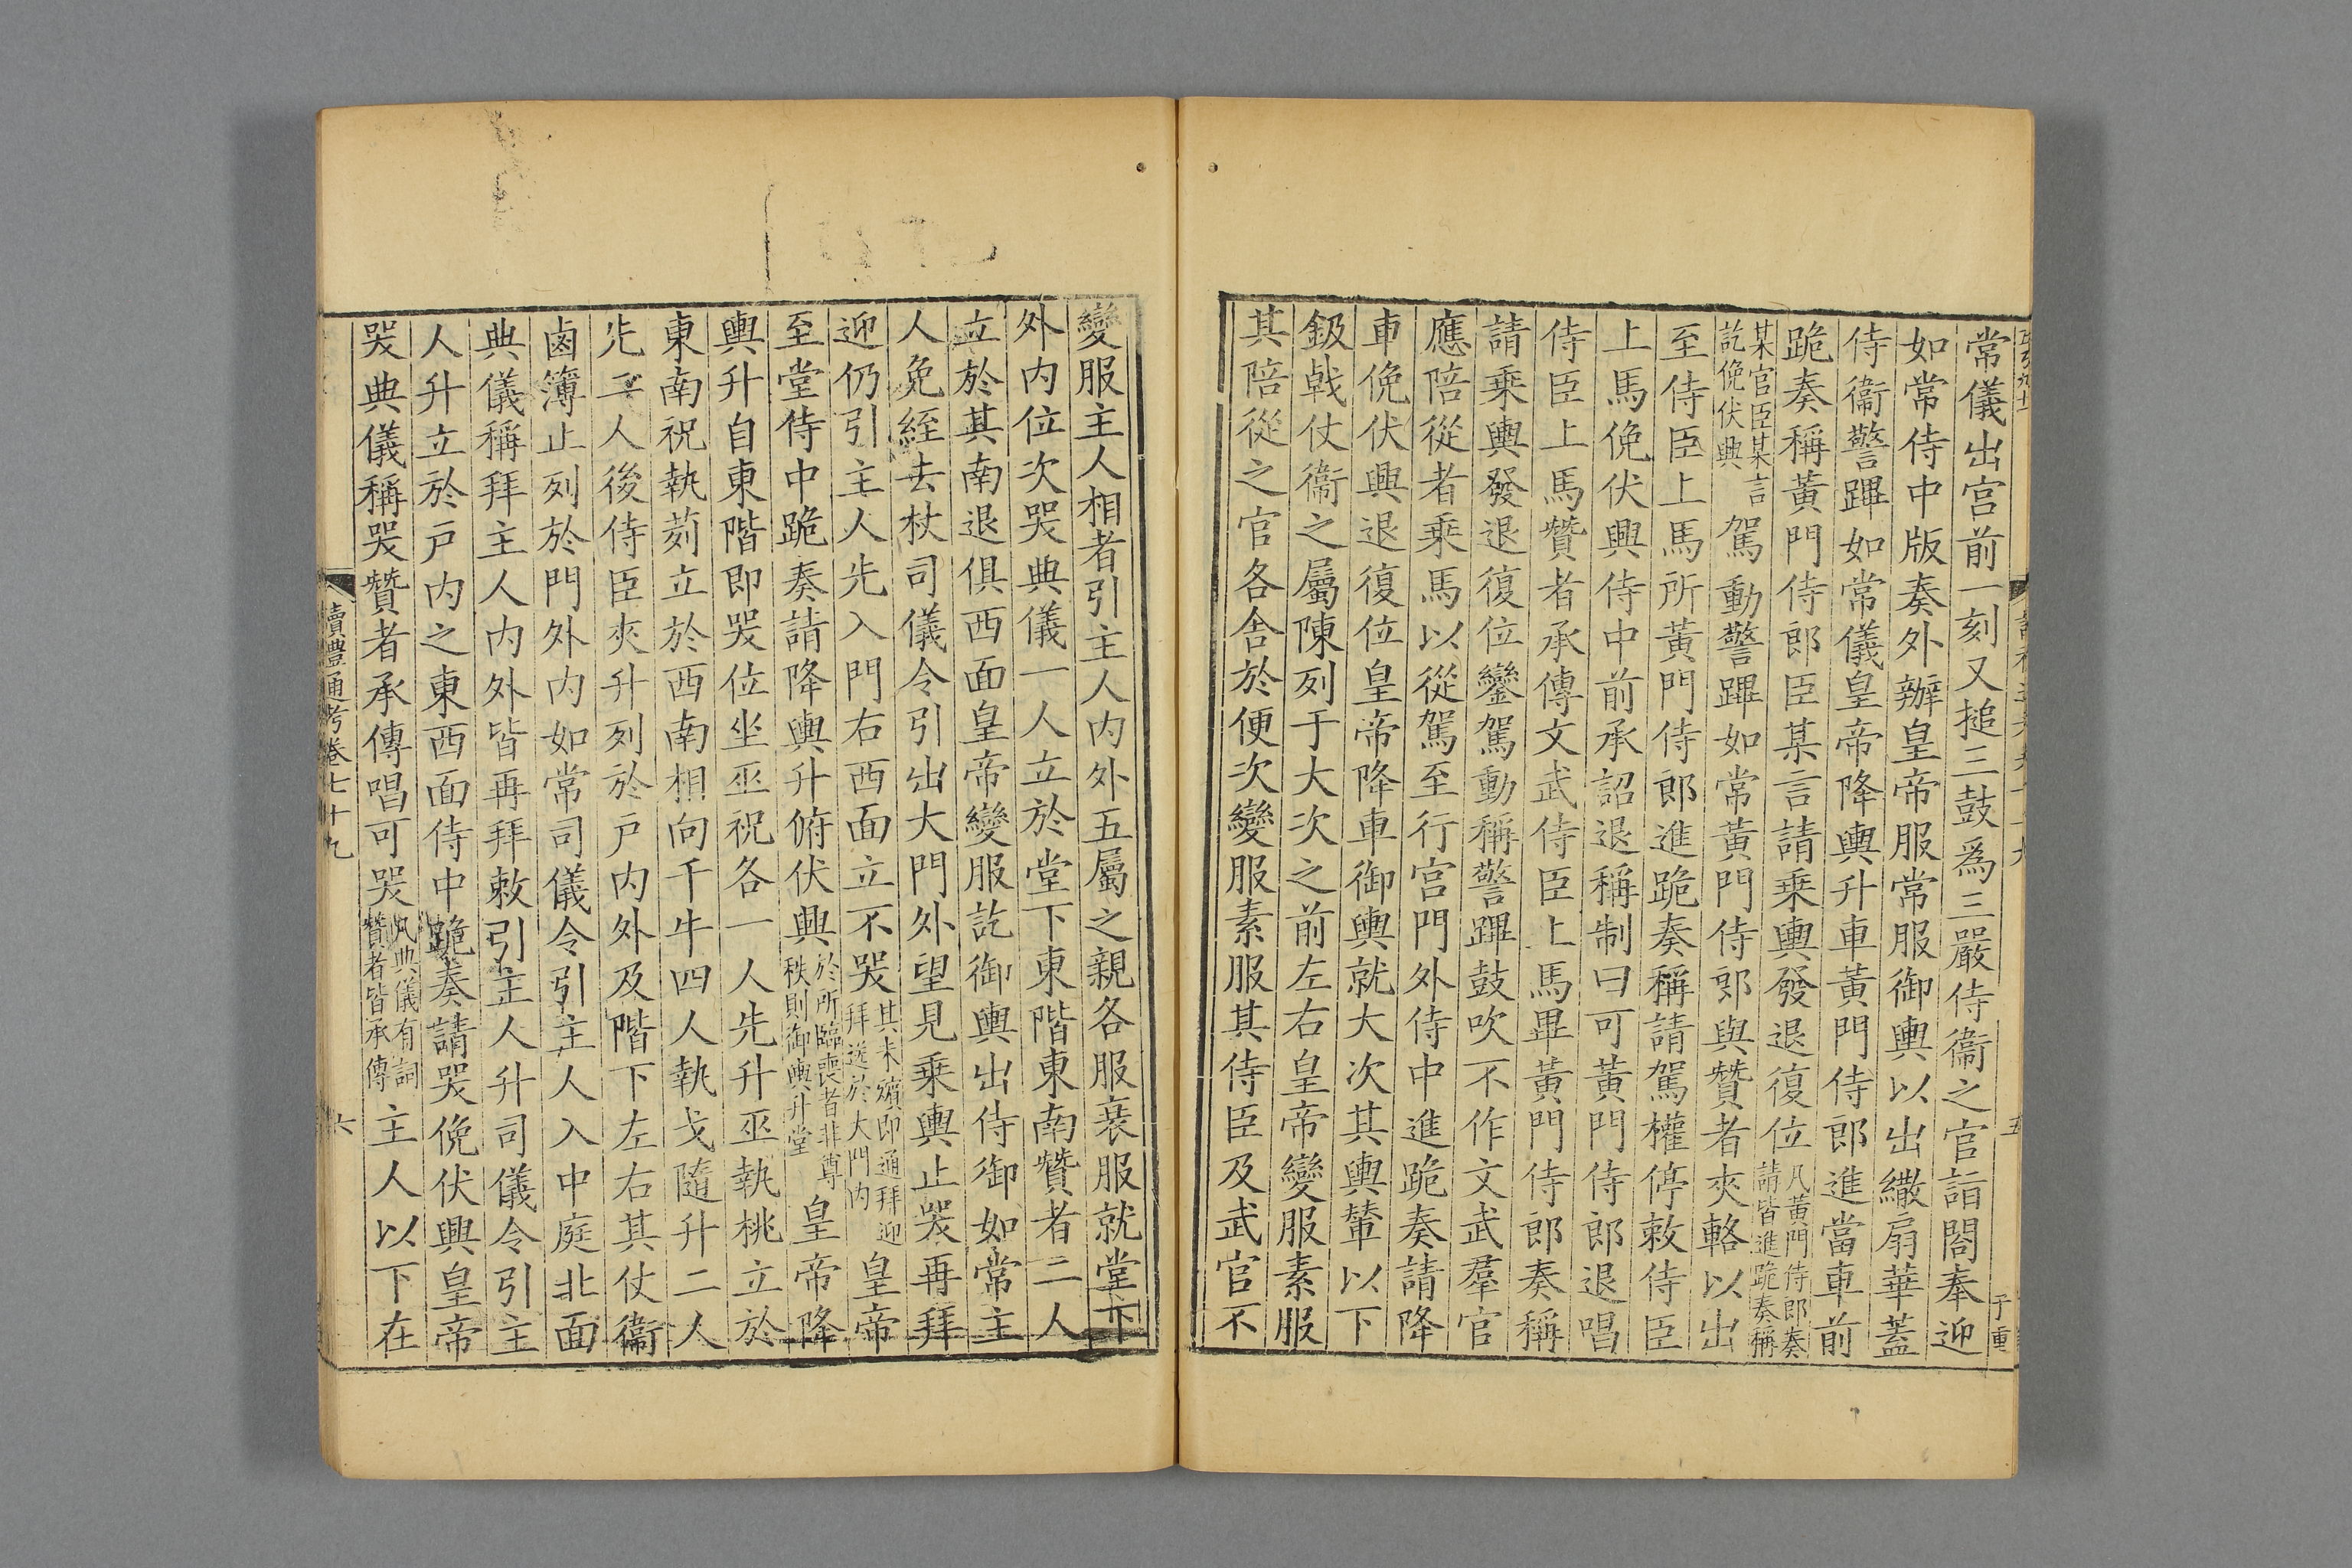 常儀出宮前一刻又搥三鼓爲三嚴侍衞之官詣閤奉迎
如常侍中版奏外辦皇帝服常服御輿以出繖扇華蓋
侍衞警蹕如常儀皇帝降輿升車黃門侍郎進當車前
跪奏稱黃門侍郎臣某言請乗輿發退復位凡黃門侍郎奏請皆進跪奏稱
某官臣某言訖俛伏興駕動警蹕如常黃門侍郎與贊者夾輅以出
至侍臣上馬所黃門侍郎進跪奏稱請駕權停敕侍臣
上馬俛伏興侍中前承詔退稱制曰可黃門侍郎退唱
侍臣上馬贊者承傳文武侍臣上馬畢黃門侍郎奏稱
請乗輿發退復位鑾駕動稱警蹕鼓吹不作文武羣官
應陪從者乗馬以從駕至行宮門外侍中進跪奏請降
車俛伏興退復位皇帝降車御輿就大次其輿輦以下
鈒戟仗衞之屬陳列于大次之前左右皇帝變服素服
其陪從之官各舍於便次變服素服其侍臣及武官不
變服主人相者引主人内外五屬之親各服衰服就堂下
外内位次哭典儀一人立於堂下東階東南贊者二人
立於其南退俱西面皇帝變服訖御輿出侍御如常主
人免絰去杖司儀令引出大門外望見乗輿止哭再拜
迎仍引主人先入門右西面立不哭其未殯即通拜迎拜送於大門内皇帝
至堂侍中跪奏請降輿升俯伏興於所臨喪者非尊秩則御輿升堂皇帝降
輿升自東階即哭位坐巫祝各一人先升巫執桃立於
東南祝執茢立於西南相向千牛四人執戈隨升二人
先二人後侍臣夾升列於戸内外及階下左右其仗衞
鹵簿止列於門外内如常司儀令引主人入中庭北面
典儀稱拜主人内外皆再拜敕引主人升司儀令引主
人升立於戸内之東西面侍中跪奏請哭俛伏興皇帝
哭典儀稱哭贊者承傳唱可哭凡典儀有詞贊者皆承傳主人以下在
讀禮通考卷七十九
六